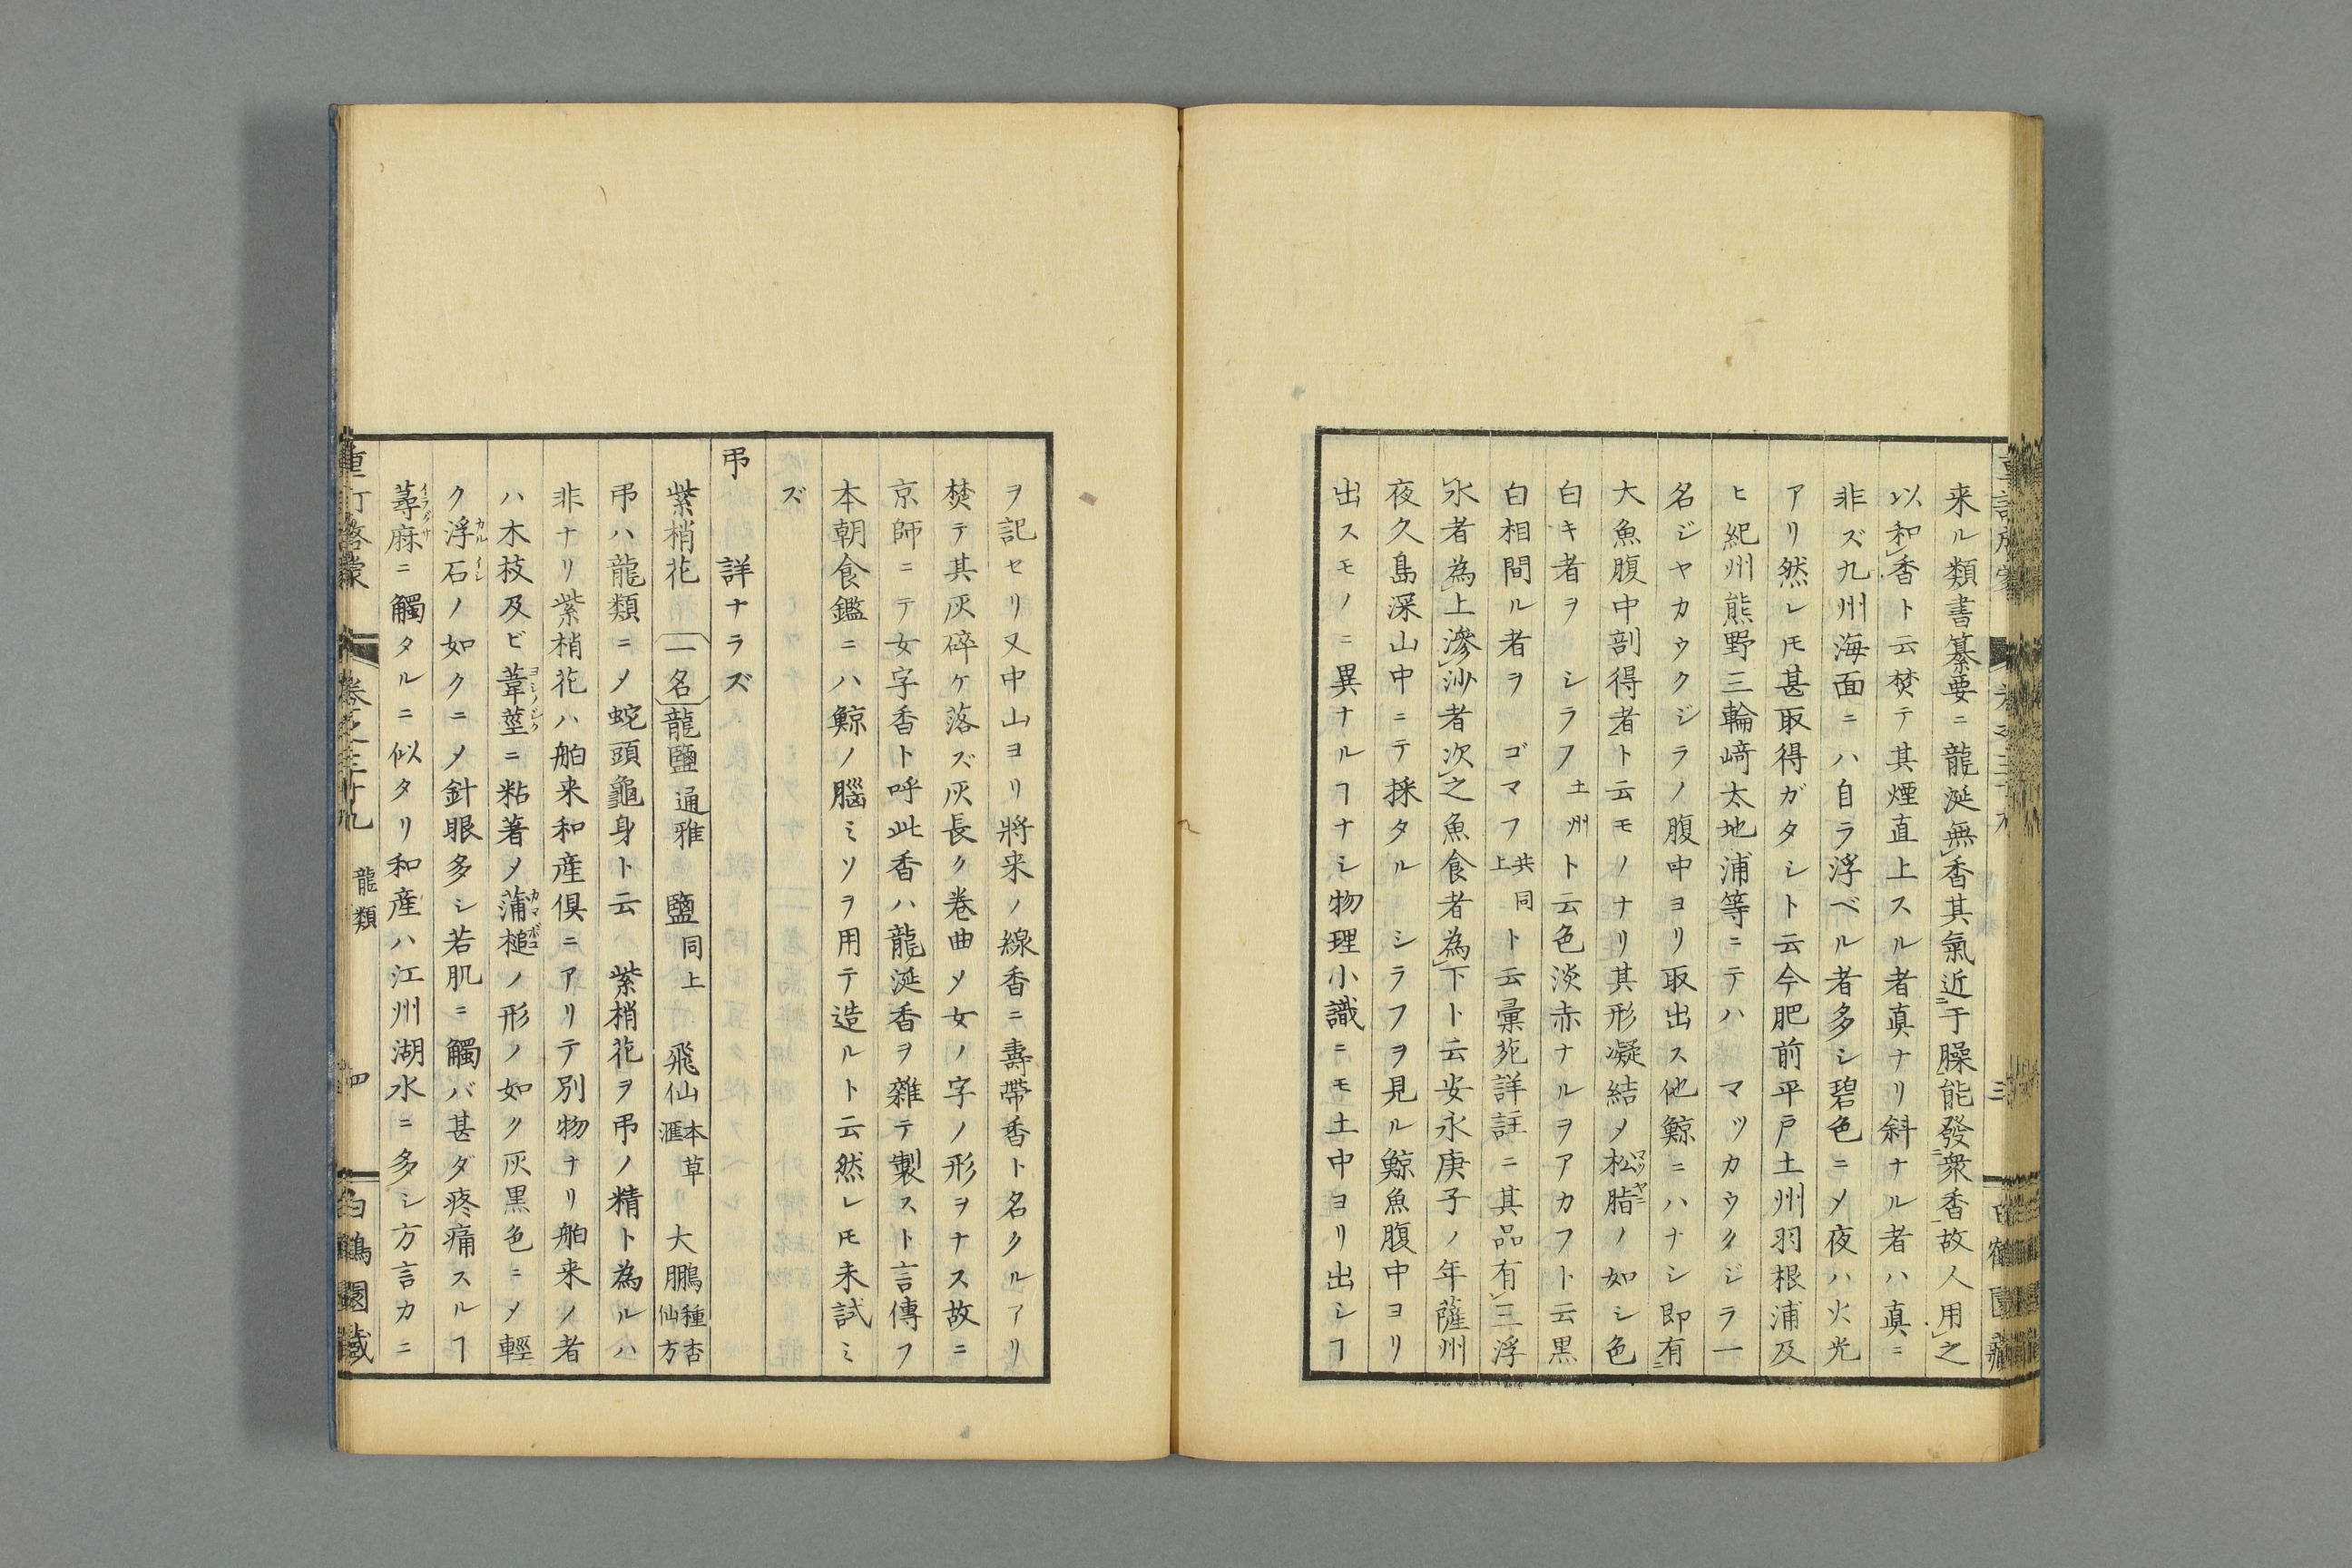 来ル類書纂要ニ龍涎無香其氣近于臊能發衆香故人用之
以和香ト云焚テ其煙直上スル者真ナリ斜ナル者ハ真ニ
非ズ九州海面ニハ自ラ浮ベル者多シ碧色ニメ夜ハ火光
アリ然レ𪜈甚取得ガタシト云今肥前平戸土州羽根浦及
ヒ紀州熊野三輪﨑太地浦等ニテハマツカウクジラ一
名ジヤカウクジラノ腹中ヨリ取出ス他鯨ニハナシ即有
大魚腹中剖得者ト云モノナリ其形凝結メ松脂マツヤニノ如シ色
白キ者ヲシラフ土州ト云色淡赤ナルヲアカフト云黒
白相間ル者ヲゴマフ共同上ト云彙苑詳註ニ其品有三浮
水者為上滲沙者次之魚食者為下ト云安永庚子ノ年薩州
夜久島深山中ニテ採タルシラフヲ見ル鯨魚腹中ヨリ
出スモノニ異ナルヿナシ物理小識ニモ土中ヨリ出シヿ
三
ヲ記セリ又中山ヨリ將来ノ線香ニ壽帶香ト名クルアリ
焚テ其灰碎ケ落ズ灰長ク卷曲メ女ノ字ノ形ヲナス故ニ
京師ニテ女字香ト呼此香ハ龍涎香ヲ雜テ製スト言傳フ
本朝食鑑ニハ鯨ノ腦ミソヲ用テ造ルト云然レ𪜈未試ミ
ズ
弔 詳ナラズ
紫梢花 一名 龍鹽通雅 鹽同上 飛仙本草滙 大鵬種杏仙方
弔ハ龍類ニメ蛇頭龜身ト云 紫梢花ヲ弔ノ精ト為ルハ
非ナリ紫梢花ハ舶来和産俱ニアリテ別物ナリ舶来ノ者
ハ木枝及ビ葦莖ヨシノジクニ粘著メ蒲槌カマボコノ形ノ如ク灰黒色ニメ輕
ク浮石カルイシノ如クニメ針眼多シ若肌ニ觸バ甚ダ疼痛スルヿ
蕁麻イラグサニ觸タルニ似タリ和産ハ江州湖水ニ多シ方言カニ
重訂啓蒙 卷之三十九 龍類 四 白鶴園藏